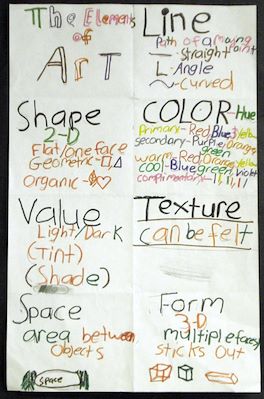 The Elements
of
ArT
Line
Path of a moving point
Straight
Angle
Curved
Shape
2-D
Flat/one face
Geometric
organic
COLOR-Hue
Primary-Red, Blue, Yellow
secondary-Purple, Orange,
green
warm-Red, Orange, Yellow
cool-Blue, green, violet
complimentary
Value
Light/Dark
(Tint)
(Shade)
Texture
can be felt
Space
area between
Objects
Space
Form
3-D
multiple faces
sticks out